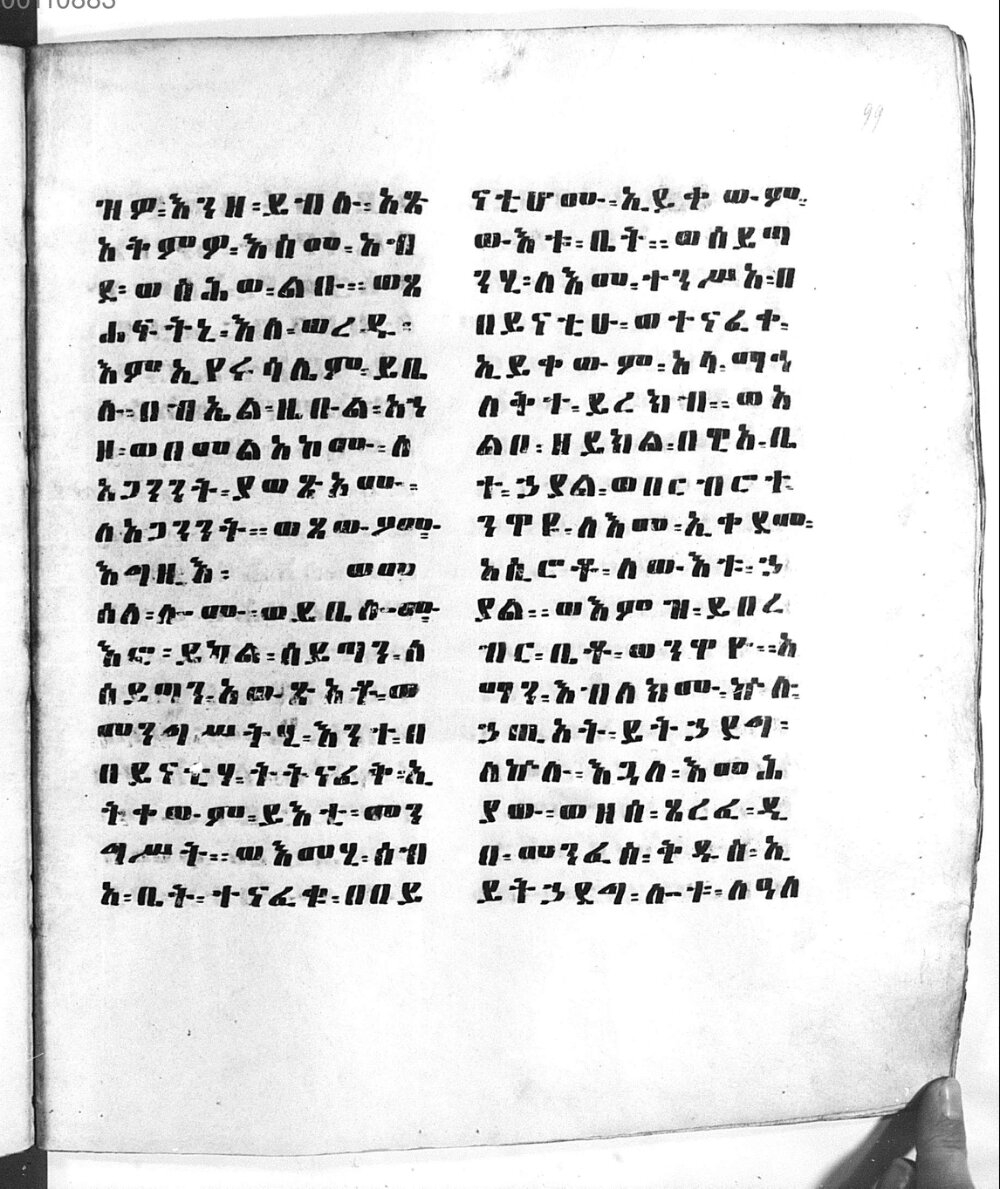 00110883
99
ዝሞ፡እንዘ፡ይብሉ፡አጼ
አትምሞ፡እስመ፡አብ
ደ፡ወሰሐወ፡ልቡ፡፡ወጸ
ሐፍትኒ፡እለ፡ወረዱ፡
እምኢየሩሳሌም፡ይቤ
ሉ፡በብኤልዜቡል፡አኀ
ዘ፡ወበመልአከሙ፡ለ
አጋንንት፡ያወጽኦሙ፡
ለአጋንንት፡፡ወጸውዖሙ፡
እግዚእ፡ ወመ
ሰለ፡ሎሙ፡ወይቤሎሙ፡
እፎ፡ይክል፡ሰይጣን፡ለ
ሰይጣን፡አውጽኦቶ፡ወ
መንግሥትሂ፡እንተ፡በ
በይናቲሃ፡ትትናፈቅ፡ኢ
ትቀውም፡ይእቲ፡መን
ግሥት፡፡ወእመሂ፡ሰብ
አ፡ቤት፡ተናፈቁ፡በበይ
ናቲሆሙ፡ኢይቀውም፡
ውእቱ፡ቤት፡፡ወሰይጣ
ንሂ፡ለእመ፡ተንሥአ፡በ
በይናቲሁ፡ወተናፈቀ፡
ኢይቀውም፡አላ፡ማኅ
ለቅተ፡ይረክብ፡፡ወአ
ልቦ፡ዘይክል፡በዊአ፡ቤ
ተ፡ኃያል፡ወበርብሮተ፡
ንዋዩ፡ለእመ፡ኢቀደመ፡
አሲሮቶ፡ለውእቱ፡ኃ
ያል፡፡ወእምዝ፡ይበረ
ብር፡ቤቶ፡ወንዋዮ፡፡አ
ማን፡እብለክሙ፡ኵሉ፡
ኃጢአት፡ይትኃደግ፡
ለኵሉ፡እጓለ፡እመሕ
ያው፡ወዘሰ፡ጸረፈ፡ዲ
በ፡መንፈስ፡ቅዱስ፡ኢ
ይትኃደግ፡ሎቱ፡ለዓለ